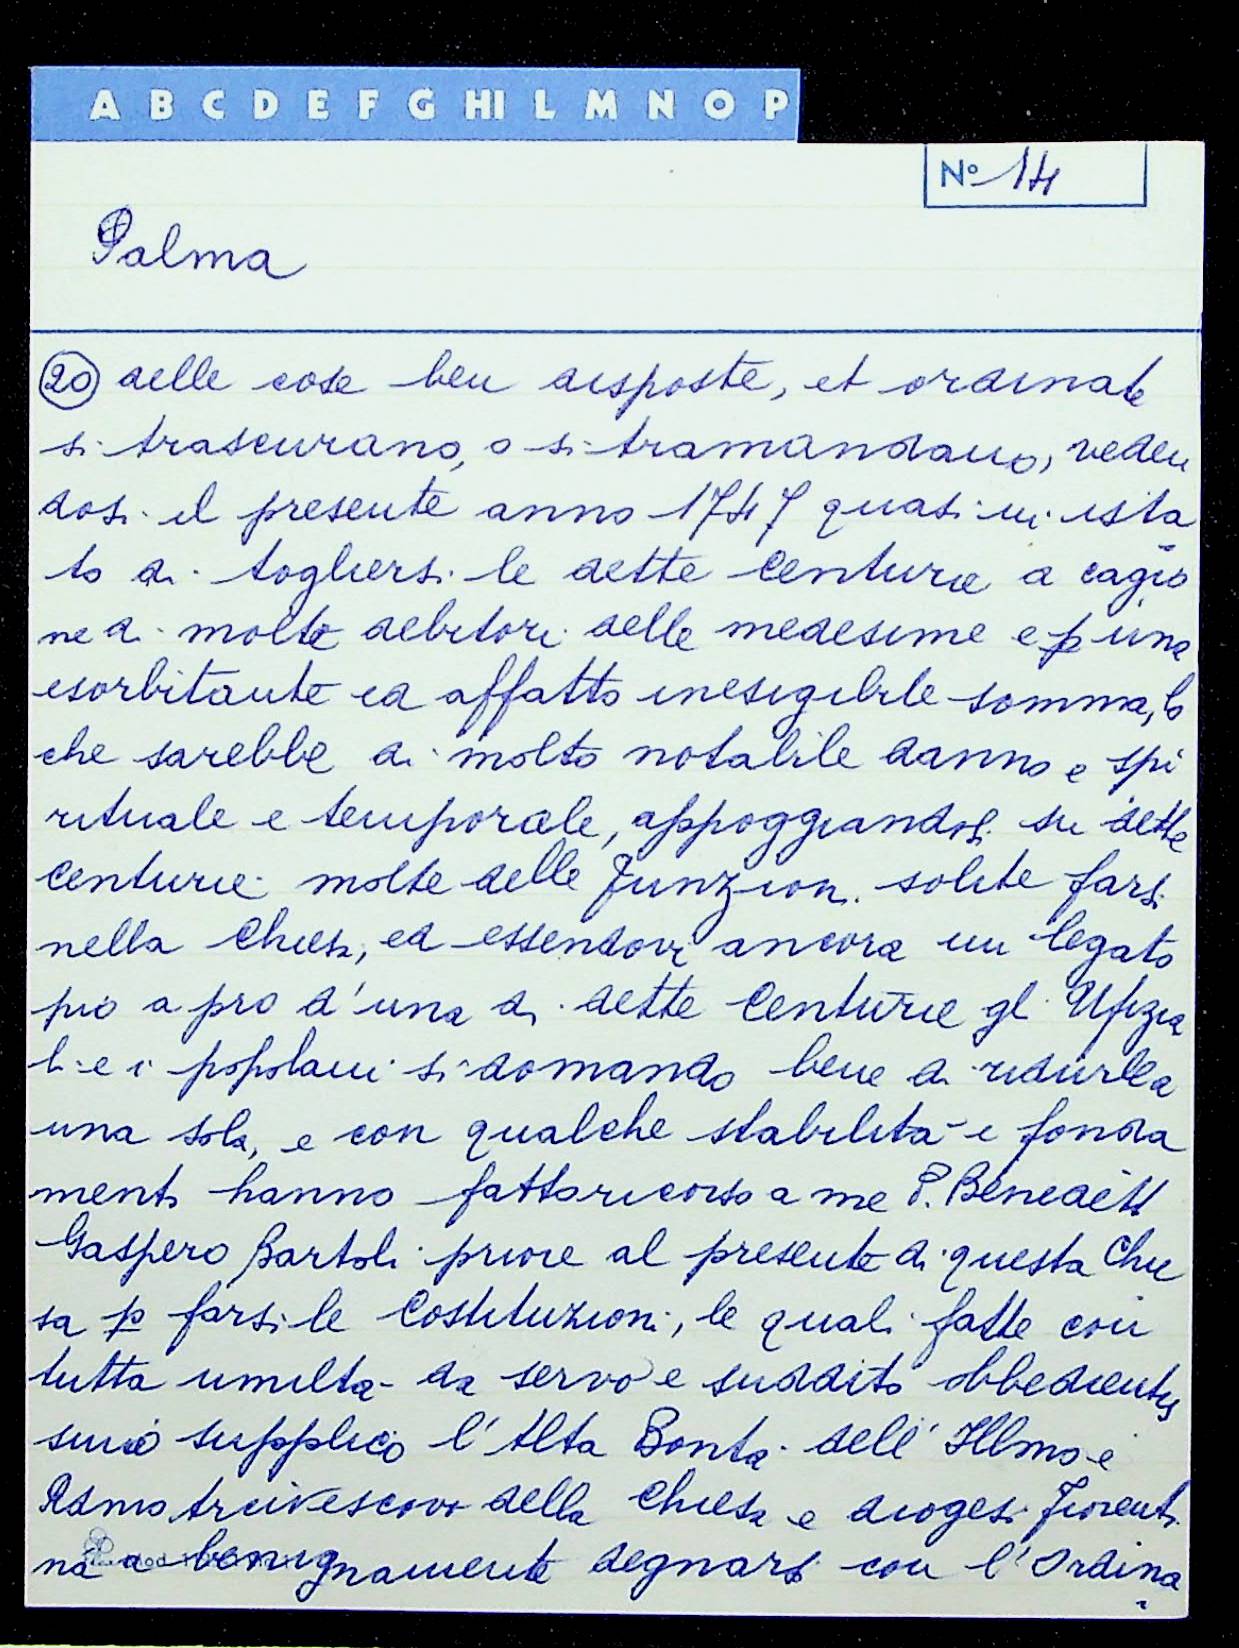 A B C D E F G HI L M N O P
Nº 14
Palma
20 delle cose ben disposte, et ordinate
si trascurano, o si tramandano, veden
dosi il presente anno 1747 quasi in ista
to di togliersi le dette Centurie a cagio
ne di molte debitori delle medesime e p una
esorbitante ed affatto inesigibile somma, lo
che sarebbe di molto notabile danno e spi
rituale e temporale, appoggiandosi su dette
centurie molte delle Funzioni solite farsi
nella Chiesa, ed essendovi ancora un legato
pio a pro d'una di dette Centurie gl Ufizia
li e i popolani si domando bene di ridurle a
una sola, e con qualche stabilità e fonda
menti hanno fatto ricorso a me P. Benedett
Gaspero Bartoli priore al presente di questa Chie
sa p farsi le Costituzioni, le quali fatte con
tutta umiltà da servo e suddito obbedientis
simo supplico l'Alta Bontà dell' Illmo e
Rdmo Arcivescovo della Chiesa e diogesi Fiorenti
na a benignamente degnarsi con l'Ordina